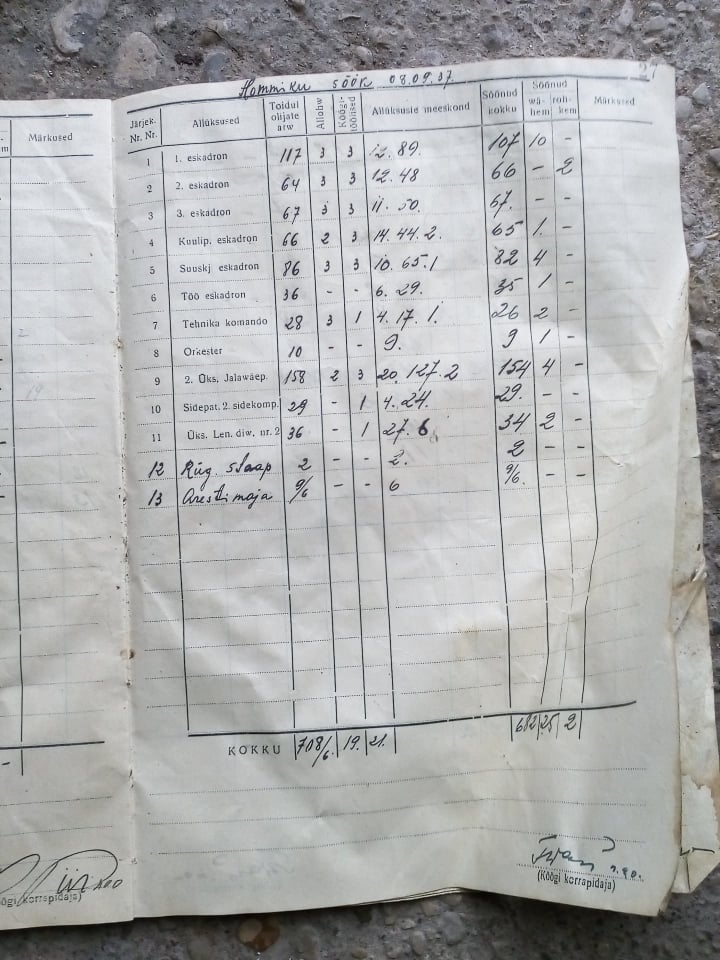 27
Hommiku söök 08.09.37.
Märkused
Järjek. Nr. Nr. Allüksused Toidul olijate arw Allohw Köögitöölised Allüksuste meeskond Söönud kokku Söönud wähem rohkem Märkused
1 1. eskadron 117 3 3 12. 89. 107 10 -
2 2. eskadron 64 3 3 12. 48 66 - 2
3 3. eskadron 67 3 3 11. 50. 67. - -
4 Kuulip. eskadron 66 2 3 14. 44. 2. 65 1. -
5 Suuskj eskadron 86 3 3 10. 65. 1 82 4 -
6 Töö eskadron 36 - - 6. 29. 35 1 -
7 Tehnika komando 28 3 1 4. 17. 1. 26 2 -
8 Orkester 10 - - 9. 9 1 -
9 2. Üks. Jalawäep. 158 2 3 20. 127. 2 154 4 -
10 Sidepat. 2. sidekomp. 29 - 1 4. 24. 29. - -
11 Üks. Len. diw. nr. 2 36 - 1 27. 6 34 2 -
12 Rüg. staap 2 - - 2. 2 - -
13 Arestimaja 9/6 - - 6 9/6. - -
KOKKU 708/6. 19. 21. 682 25 2
(Köögi korrapidaja)
öögi korrapidaja)